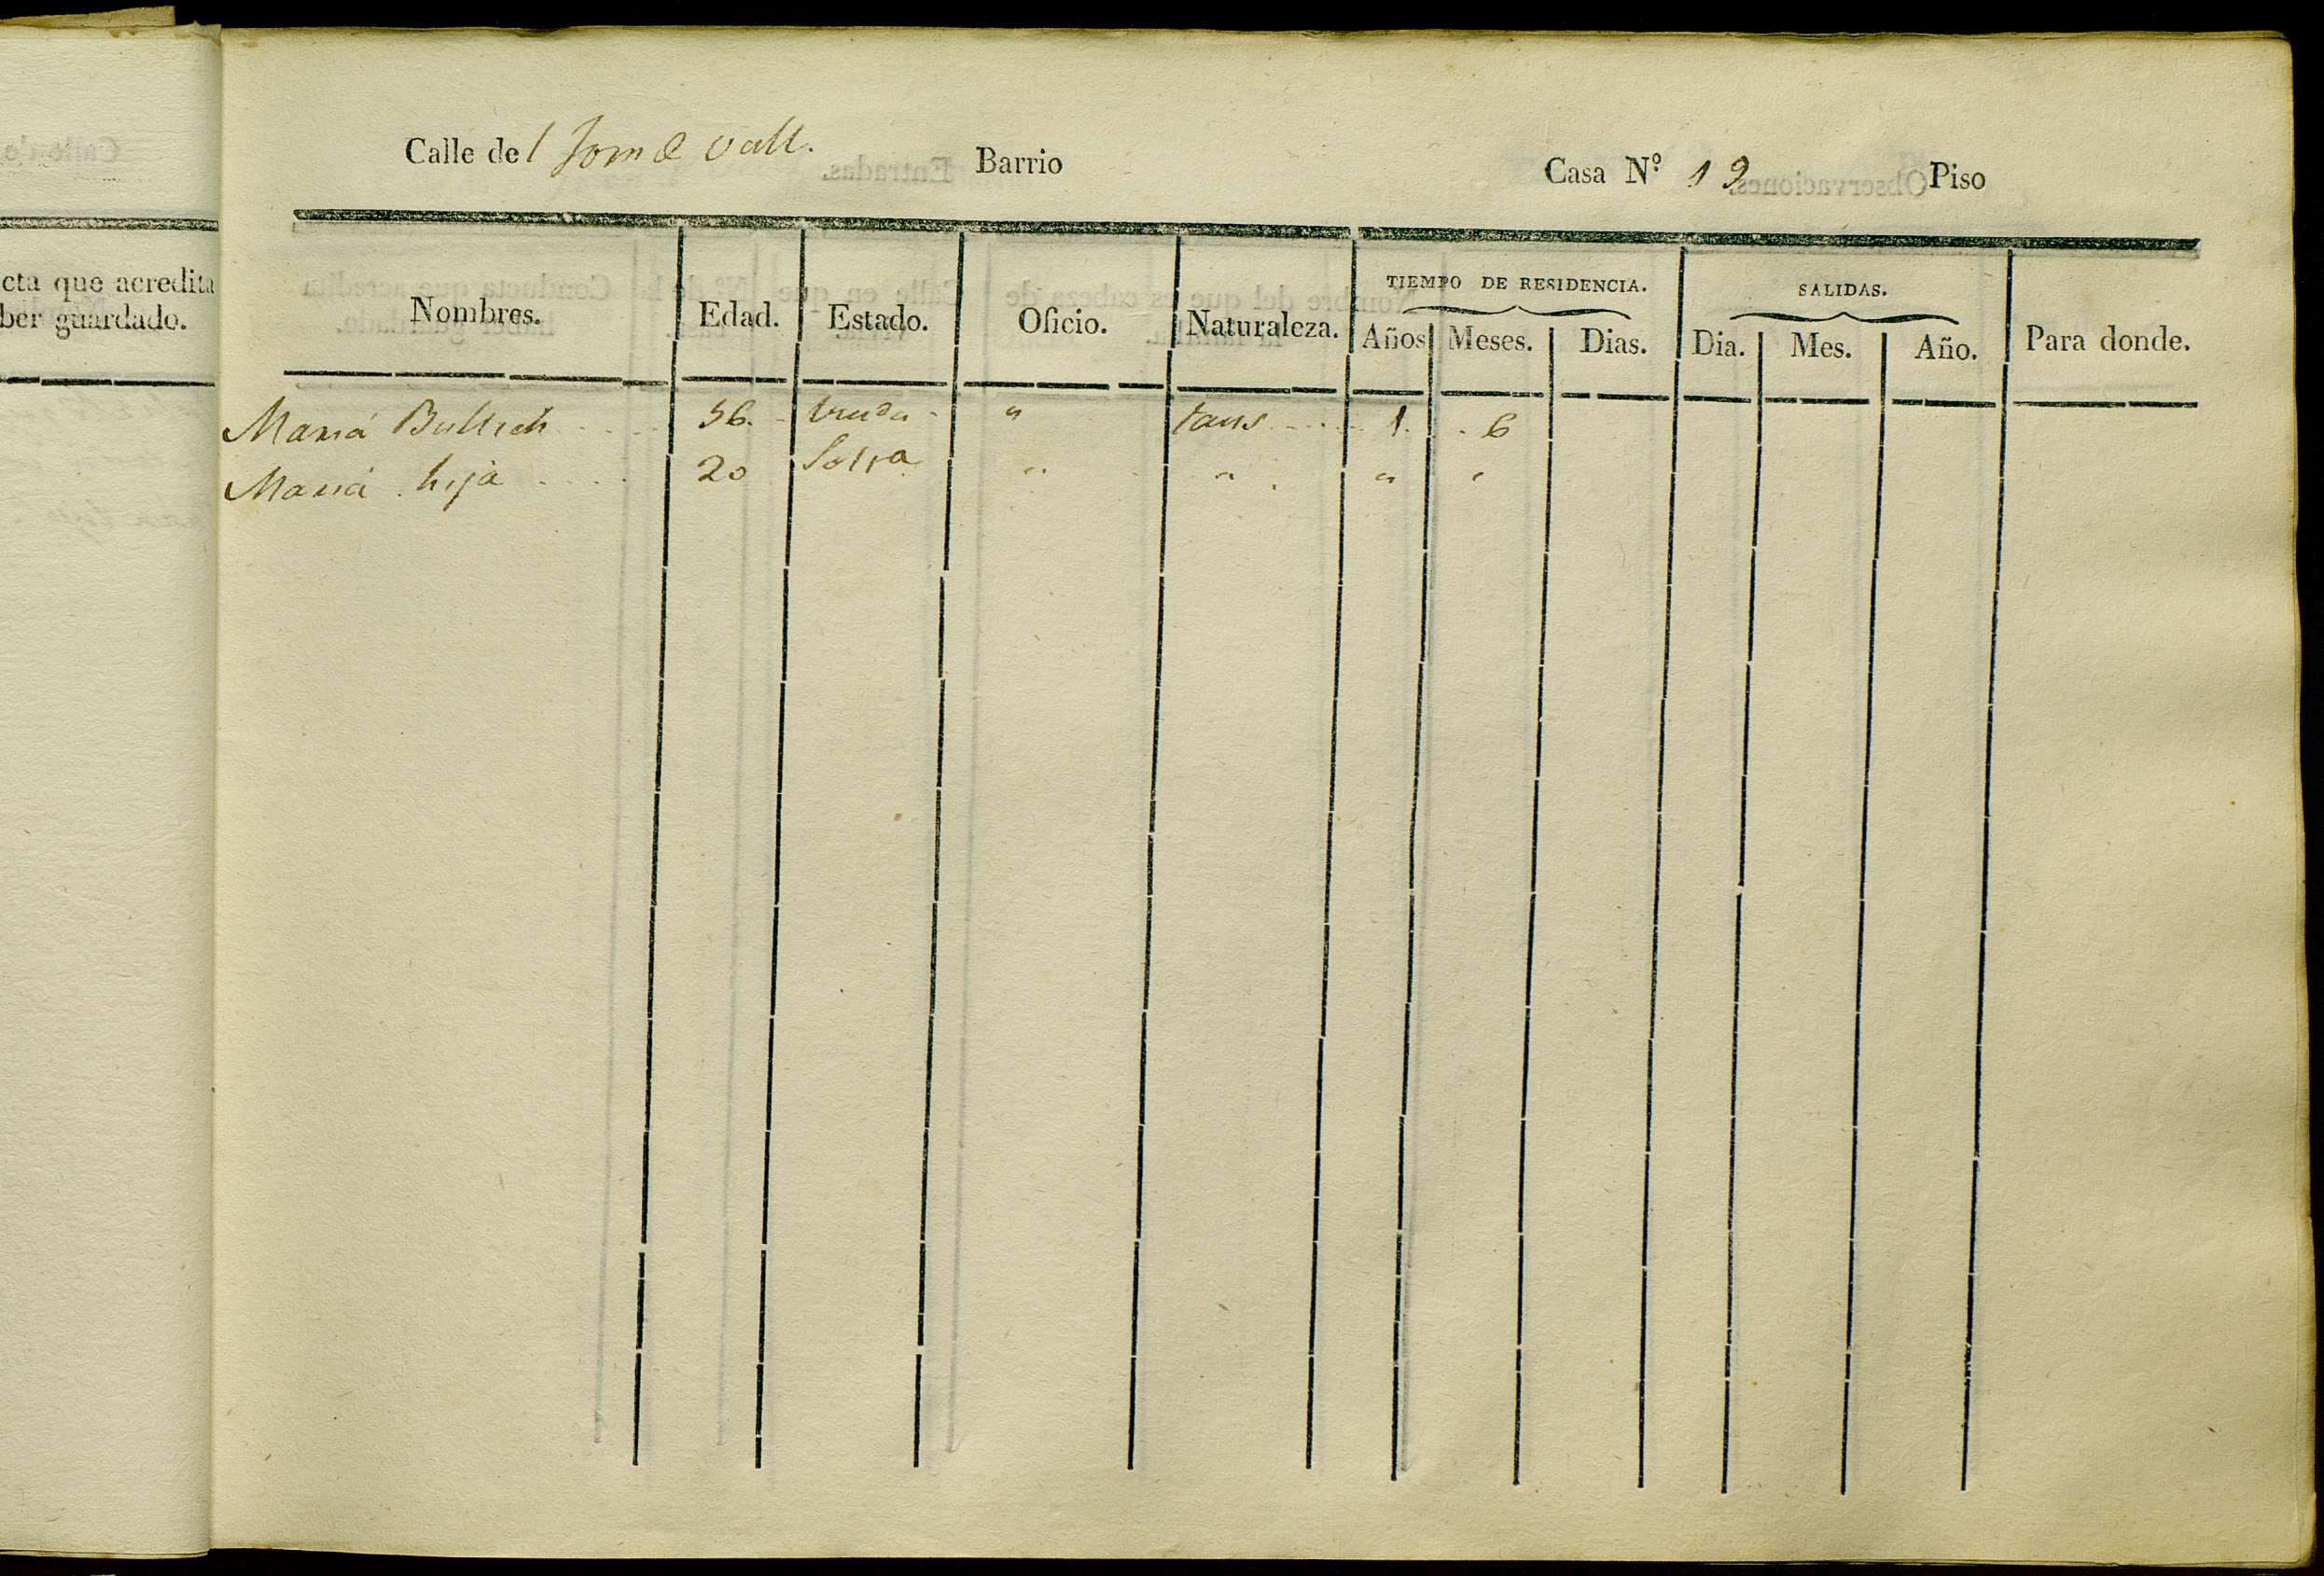 cta que acredita
ber guardado.
Calle del Jom de vall. Barrio Casa N.º 19 Piso
TIEMPO DE RESIDENCIA. SALIDAS.
Nombres. Edad. Estado. Oficio. Naturaleza. Años Meses. Dias. Dia. Mes. Año. Para donde.
Maria Bullich 56. viuda " 1. 6
Maria hija 20 Solra " " " "